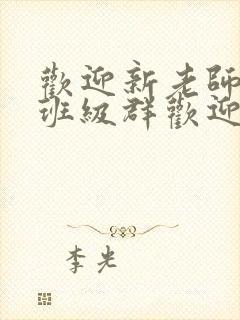 歡迎新老師
班級群歡迎
李光